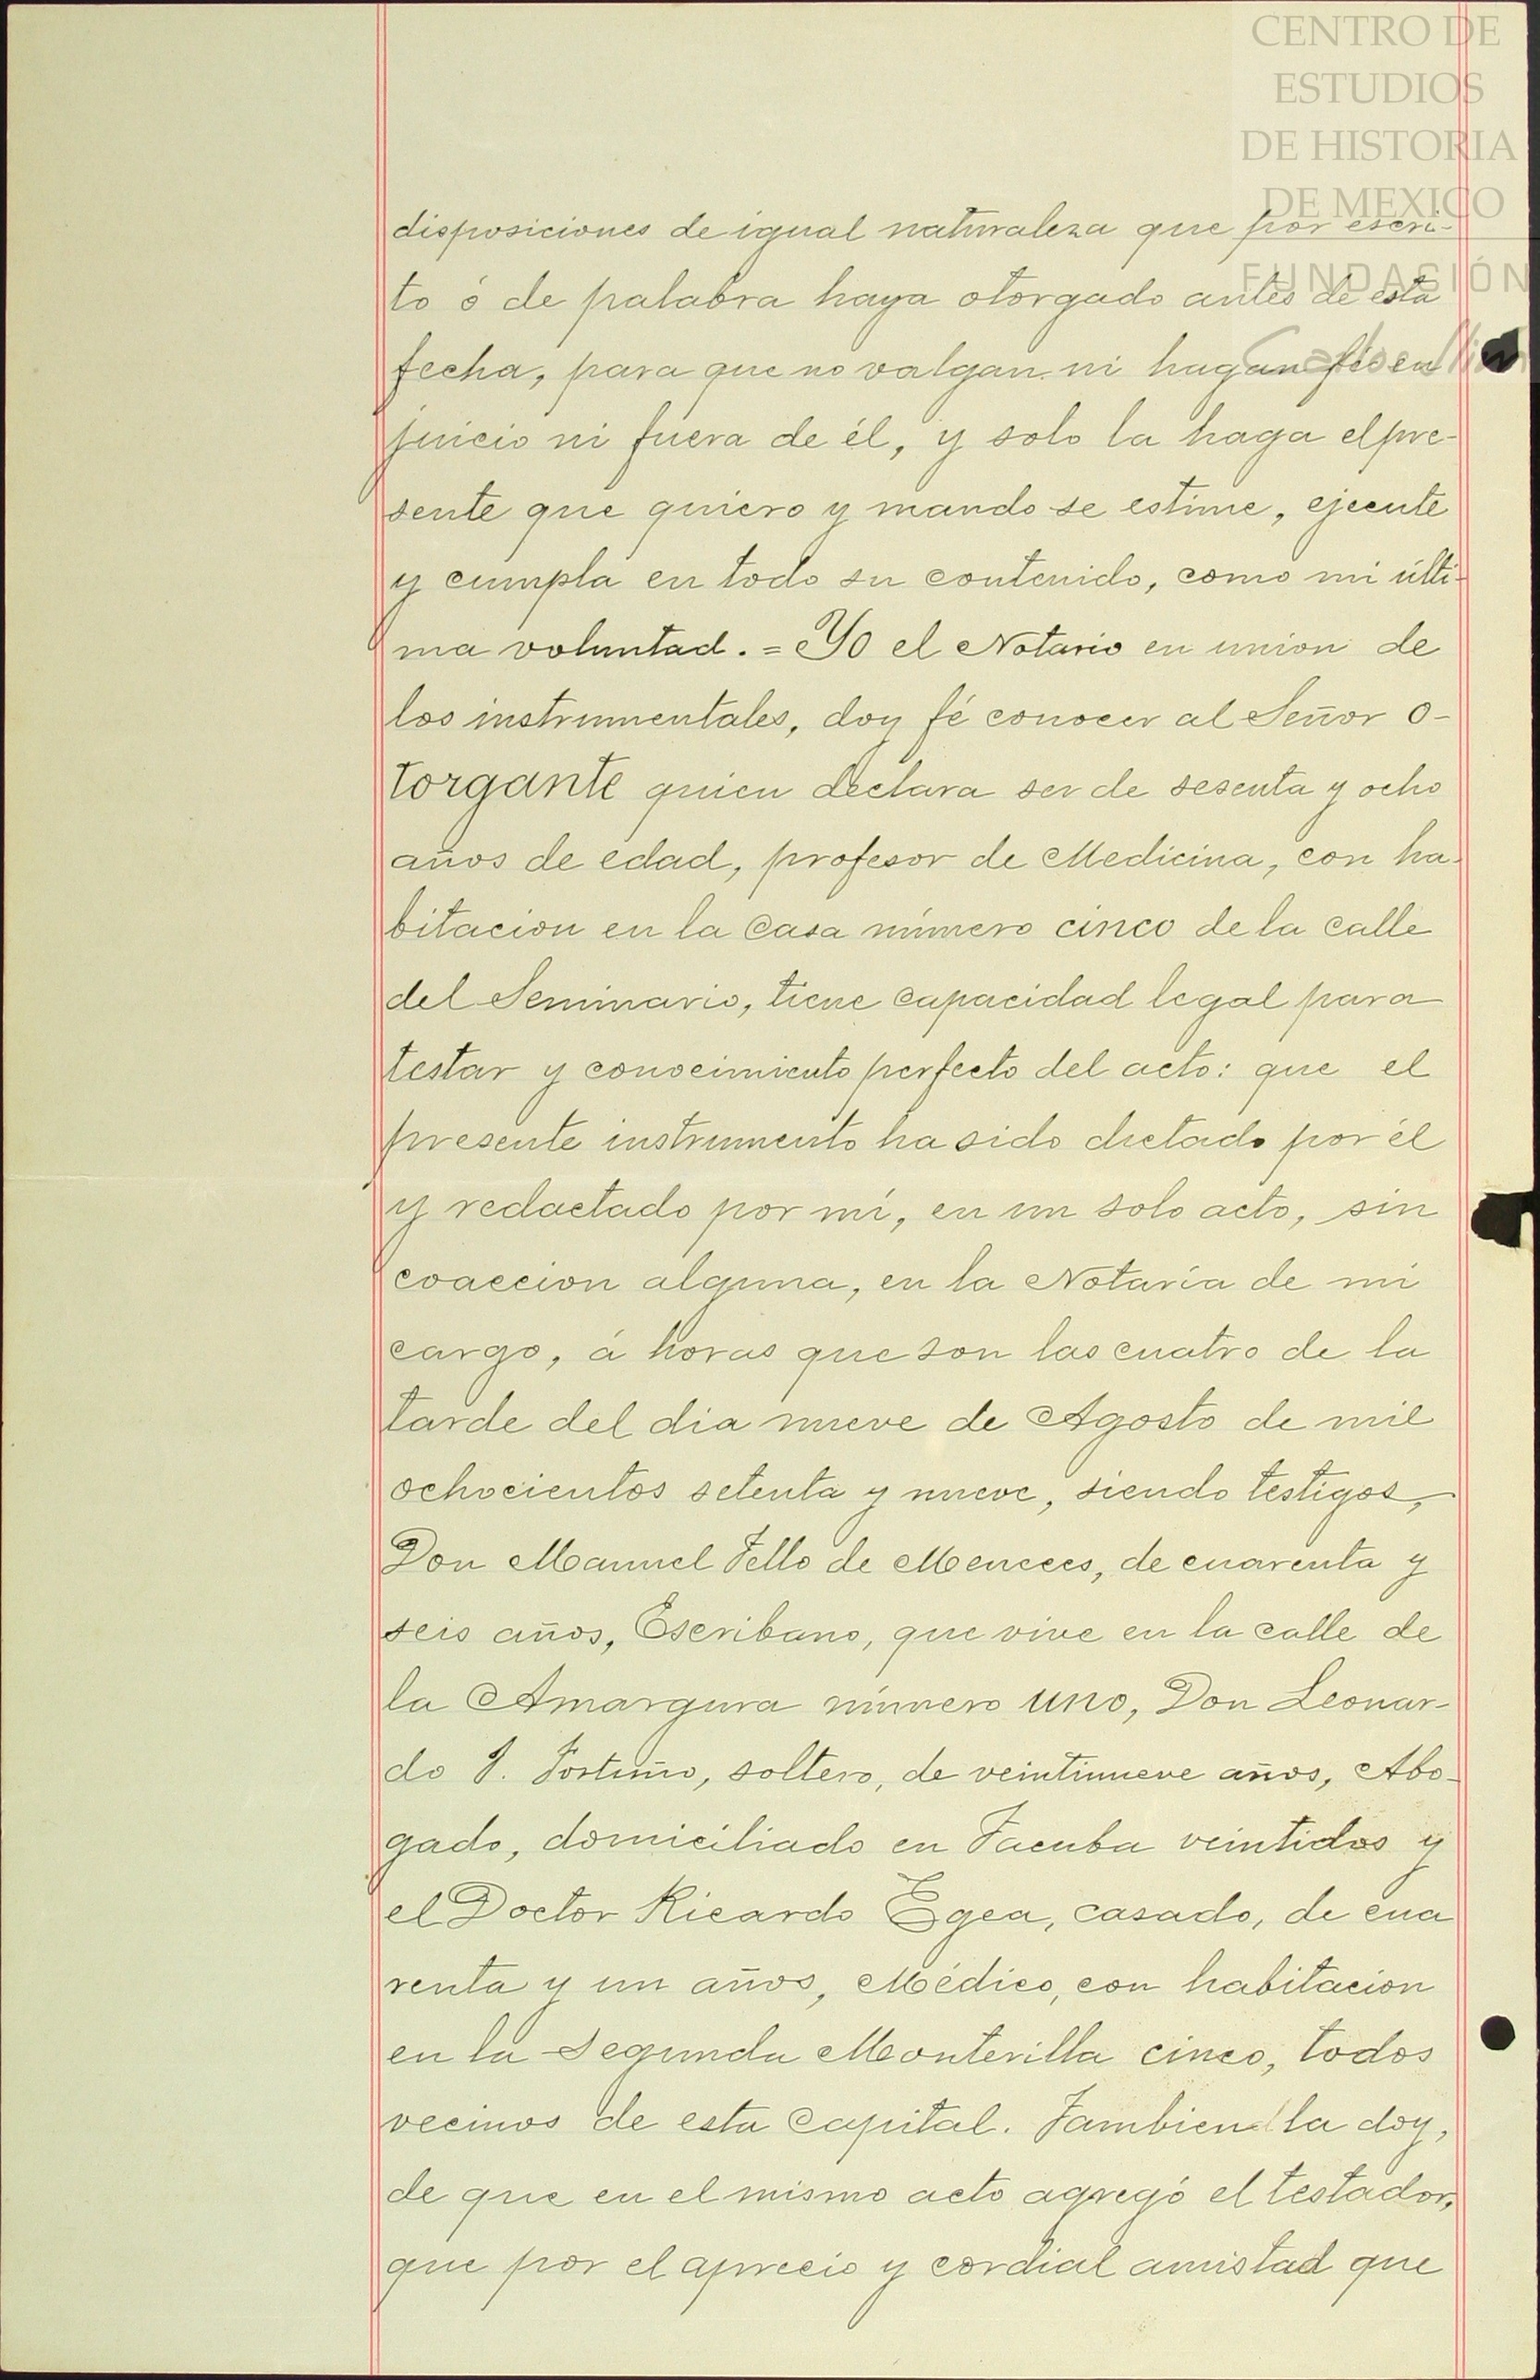 CENTRO DE
ESTUDIOS
DE HISTORIA
DE MEXICO
FUNDACIÓN
Carlos Slim
disposiciones de igual naturaleza que por escri-
to ó de palabra haya otorgado antes de esta
fecha, para que no valgan ni hagan fé en
juicio ni fuera de él, y solo la haga el pre-
sente que quiero y mando se estime, ejecute
y cumpla en todo su contenido, como mi últi-
ma voluntad. = Yo el Notario en union de
los instrumentales, doy fé conocer al Señor o-
torgante quien declara ser de sesenta y ocho
años de edad, profesor de Medicina, con ha-
bitacion en la Casa número cinco de la calle
del Seminario, tiene capacidad legal para
testar y conocimiento perfecto del acto: que el
presente instrumento ha sido dictado por él
y redactado por mí, en un solo acto, sin
coaccion alguna, en la Notaría de mi
cargo, á horas que son las cuatro de la
tarde del dia nueve de Agosto de mil
ochocientos setenta y nueve, siendo testigos,
Don Manuel Tello de Meneces, de cuarenta y
seis años, Escribano, que vive en la calle de
la Amargura número uno, Don Leonar-
do F. Fortuño, soltero, de veintinueve años, Abo-
gado, domiciliado en Tacuba veintidos y
el Doctor Ricardo Egea, casado, de cua
renta y un años, Médico, con habitacion
en la Segunda Monterilla cinco, todos
vecinos de esta Capital. Tambien la doy,
de que en el mismo acto agregó el testador,
que por el aprecio y cordial amistad que